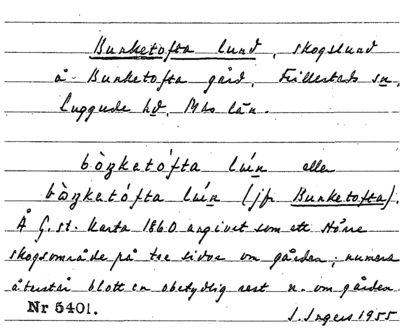 Bunketofta lund, skogslund
å Bunketofta gård, Frillestads sn,
Luggude hd, Mhs län.
bòŋketófta lúń eller
bòŋketófta lúń (jfr Bunketofta).
Å G. st. karta 1860 angivet som ett större
skogsområde på tre sidor om gården; numera
återstår blott en obetydlig rest n. om gården.
Nr 5401. J. Ingers 1955